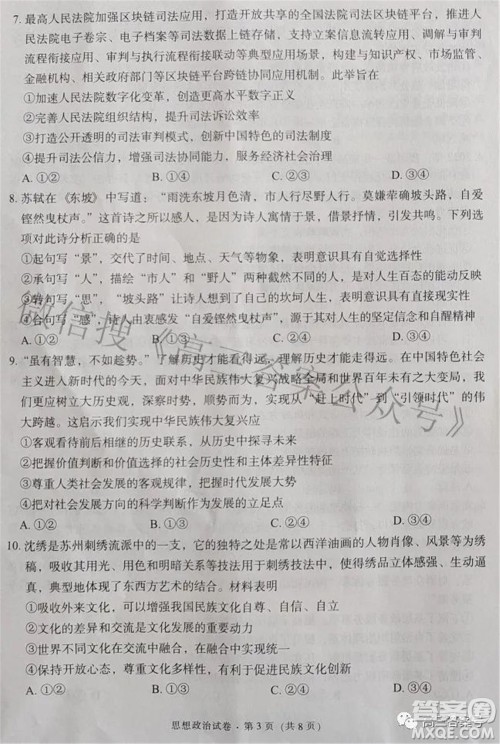 7. 最高人民法院加强区块链司法应用，打造开放共享的全国法院司法区块链平台，推进人
民法院电子卷宗、电子档案等司法数据上链存储、支持立案信息流转应用、调解与审判
流程衔接应用、审判与执行流程衔接联动等典型应用场景，构建与知识产权、市场监管、
金融机构、相关政府部门等区块链平台跨链协同应用机制。此举旨在
①加速人民法院数字化变革，创造更高水平数字正义
②完善人民法院组织结构，提升司法诉讼效率
③打造公开透明的司法审判模式，创新中国特色的司法制度
④提升司法公信力，增强司法协同能力，服务经济社会治理
A. ①② B. ①④ C. ②③ D. ③④
8. 苏轼在《东坡》中写道：“雨洗东坡月色清，市人行尽野人行。莫嫌荦确坡头路，自爱
铿然曳杖声。”这首诗之所以感人，是因为诗人寓情于景，借景抒情，引发共鸣。下列选
项对此诗分析正确的是
①起句写“景”，交代了时间、地点、天气等物象，表明意识具有自觉选择性
②承句写“人”，描绘“市人”和“野人”两种截然不同的人，是对人生百态的能动反映
③转句写“思”，“坡头路”让诗人联想到自己的坎坷人生，表明意识具有直接现实性
④合句写“感”，诗人由衷感发“自爱铿然曳杖声”，源于其对人生方向的坚定信念和自醒精神
A. ①② B. ①③ C. ②④ D. ③④
9. “虽有智慧，不如趁势。”了解历史才能看得远，理解历史才能走得远。在中国特色社会
主义进入新时代的今天，面对中华民族伟大复兴战略全局和世界百年未有之大变局，我
们更应深刻把握人类发展大历史观，深察时势，顺势而为，实现从“赶上时代”到“引领时代”的伟
大跨越。这启示我们实现中华民族伟大复兴应
①客观看待前后相继的历史联系，从历史中探寻未来
②把握价值判断和价值选择的社会历史性和主体差异性特征
③尊重人类社会发展的客观规律，自觉树立大历史观
④把对社会发展方向的科学判断作为发展的立足点
A. ①② B. ①③ C. ②④ D. ③④
10. 沈绣是苏州刺绣流派中的一支，它的独特之处是常以西洋油画的人物肖像、风景等为绣
稿，吸收其用光、用色等油画技法并运用于刺绣技法中，使得绣品立体感强、生动逼
真，典型地体现了东西方艺术的碰撞与交流。材料表明
①吸收外来文化，可以增强我国民族文化自尊、自信、自立
②文化的差异和交流是文化发展的重要动力
③世界不同文化在交流中借鉴，在融合中实现统一
④保持开放心态，尊重文化多样性，有利于促进民族文化创新
A. ①② B. ①③ C. ②④ D. ③④
思想政治试卷 · 第3页（共8页）
微信搜《高三答案公众号》
高三答案号